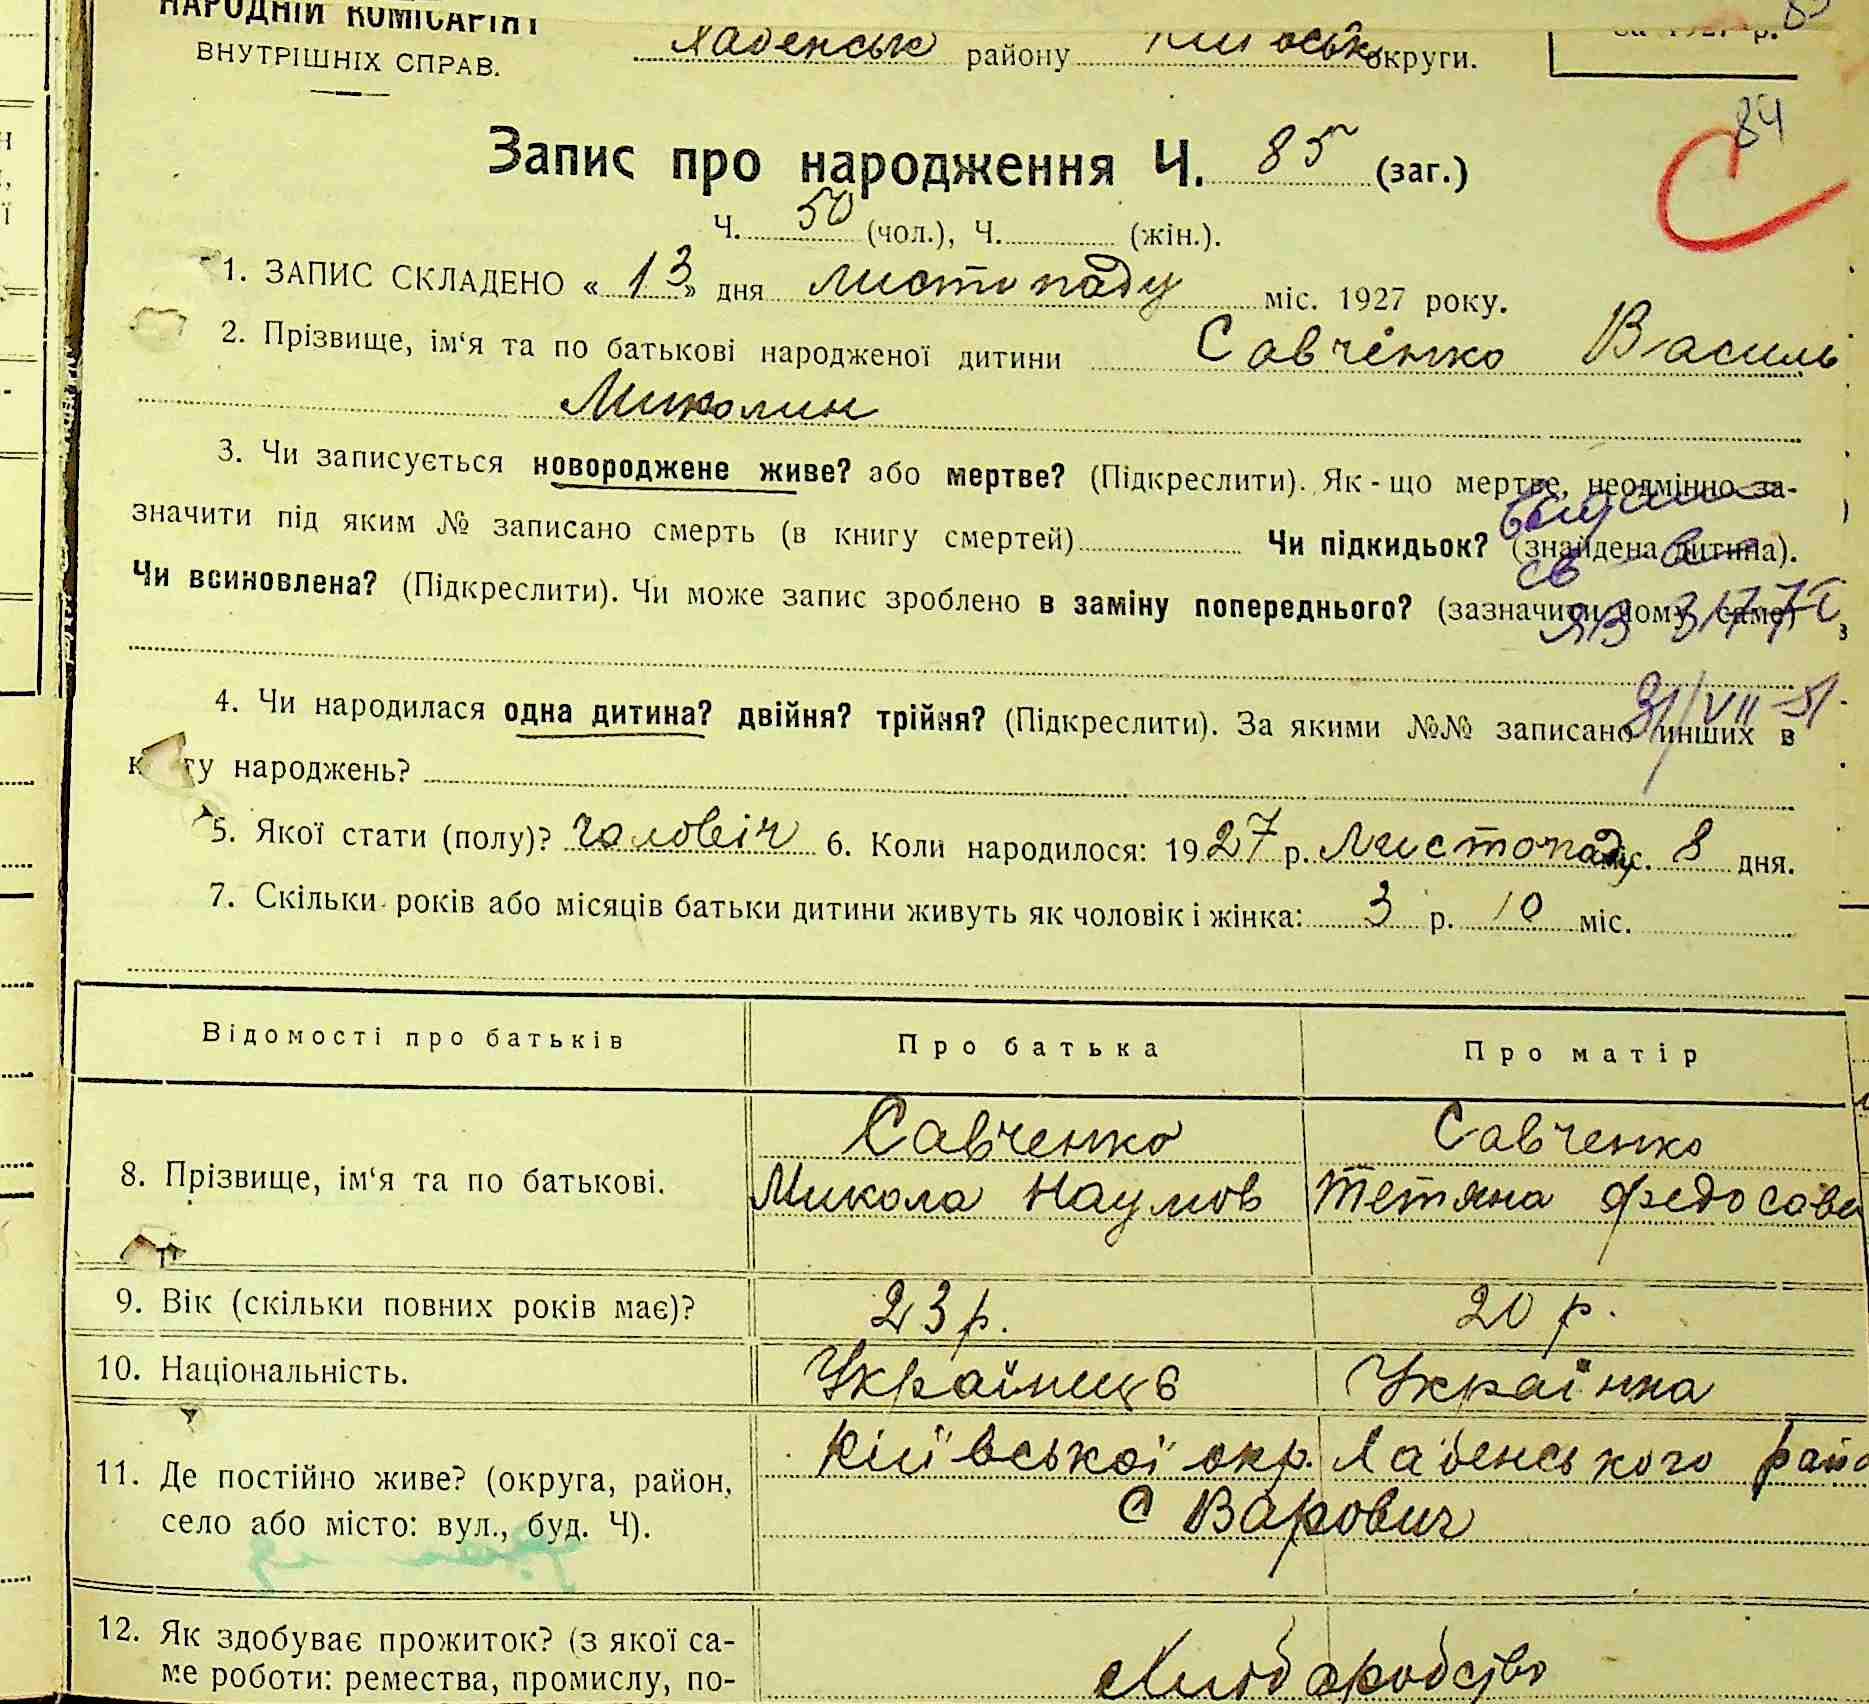 НАРОДНІЙ КОМІСАРІЯТ
ВНУТРІШНІХ СПРАВ.
району округи.
за 1927 р.
84
Запис про народження Ч. 85 (заг.)
Ч. 50 (чол.), Ч. (жін.).
1. ЗАПИС СКЛАДЕНО « 13 » дня листопаду міс. 1927 року.
2. Прізвище, ім‘я та по батькові народженої дитини Савченко Василь
Миколин
3. Чи записується новороджене живе? або мертве? (Підкреслити). Як-що мертве, неодмінно за-
значити під яким № записано смерть (в книгу смертей) Чи підкидьок? (знайдена дитина).
Чи всиновлена? (Підкреслити). Чи може запис зроблено в заміну попереднього? (зазначити чому саме)
31/VII 51
4. Чи народилася одна дитина? двійня? трійня? (Підкреслити). За якими №№ записано инших в
книгу народжень?
5. Якої стати (полу)? чоловіч 6. Коли народилося: 1927 р. Листопаду міс. 8 дня.
7. Скільки років або місяців батьки дитини живуть як чоловік і жінка: 3 р. 10 міс.
Відомості про батьків Про батька Про матір
Савченко Савченко
8. Прізвище, ім‘я та по батькові. Микола Наумов Тетяна Федосова
9. Вік (скільки повних років має)? 23 р. 20 р.
10. Національність. Українець Українка
Київської окр. Хабенського рай
11. Де постійно живе? (округа, район,
село або місто: вул., буд. Ч). С Варович
12. Як здобуває прожиток? (з якої са-
ме роботи: ремества, промислу, по- Хліборобство